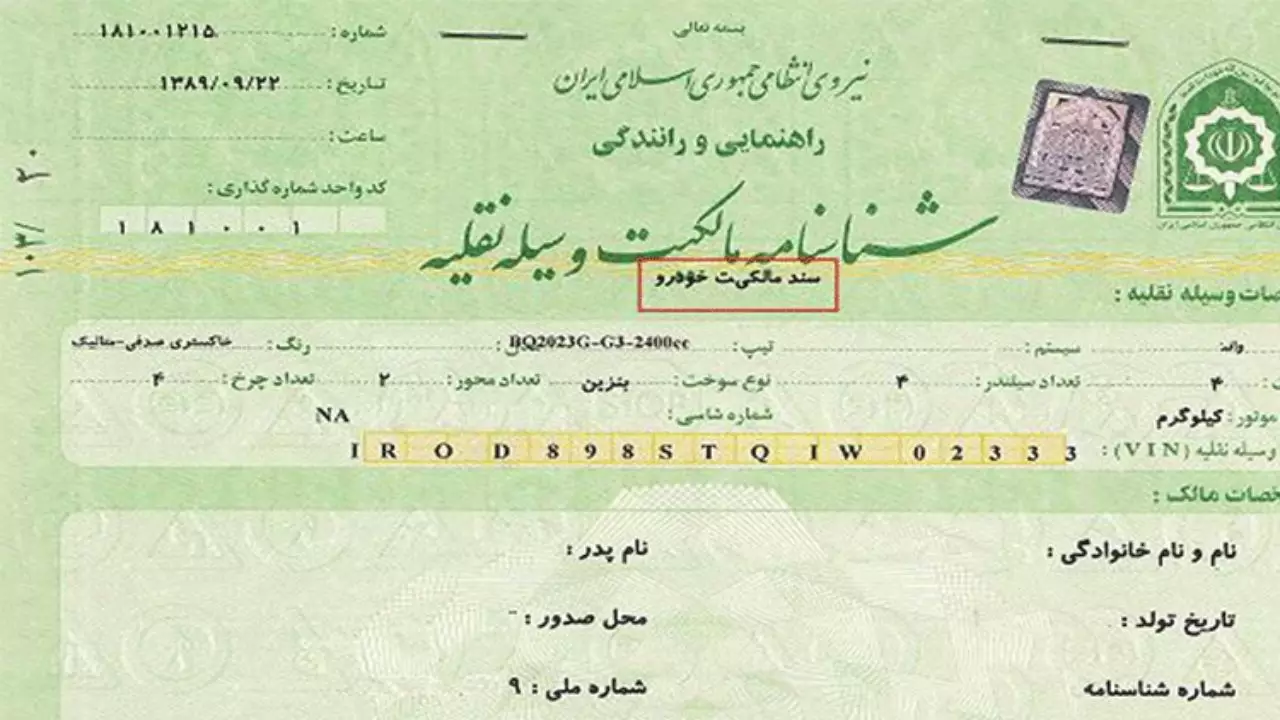 بسمه تعالی
نیروی انتظامی جمهوری اسلامی ایران
راهنمایی و رانندگی
شناسنامه مالکیت وسیله نقلیه
سند مالکیت خودرو
شماره : ۱۸۱۰۰۱۲۱۵
تاریخ : ۱۳۸۹/۰۹/۲۲
ساعت :
کد واحد شماره گذاری :
۱ ۸ ۱ ۰ ۰ ۱
۱۰۳/ ۳۰
صات وسیله نقلیه :
وانت سیستم : تیپ : BQ2023G-G3-2400cc رنگ : خاکستری صدفی-متالیک
: ۴ تعداد سیلندر : ۴ نوع سوخت : بنزین تعداد محور : ۲ تعداد چرخ : ۴
موتور : کیلوگرم شماره شاسی : NA
وسیله نقلیه (VIN) : I R O D 8 9 8 S T Q I W 0 2 3 3 3
خصات مالک :
نام و نام خانوادگی : نام پدر :
تاریخ تولد : محل صدور :
شماره شناسنامه شماره ملی : ۹